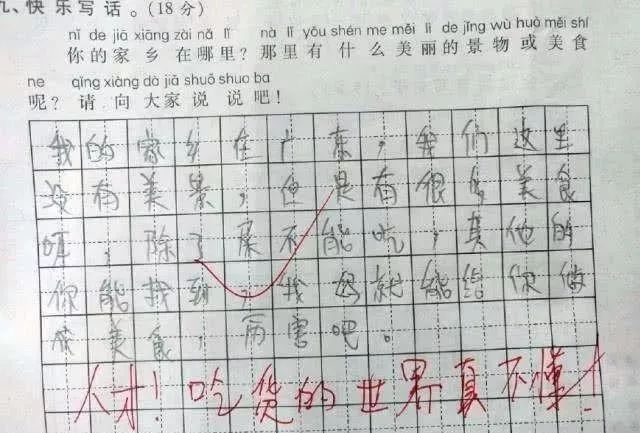 九、快乐写话。(18分)
nǐ de jiā xiāng zài nǎ lǐ nà lǐ yǒu shén me měi lì de jǐng wù huò měi shí
你的家乡在哪里?那里有什么美丽的景物或美食
ne qǐng xiàng dà jiā shuō shuo ba
呢?请向大家说说吧!
我的家乡在广东,我们这里
没有美景,但是有很多美食
哦,除了 不能吃,其他的
你能找到,我妈就能给你做
成美食,厉害吧。
人才!吃货的世界真不懂!